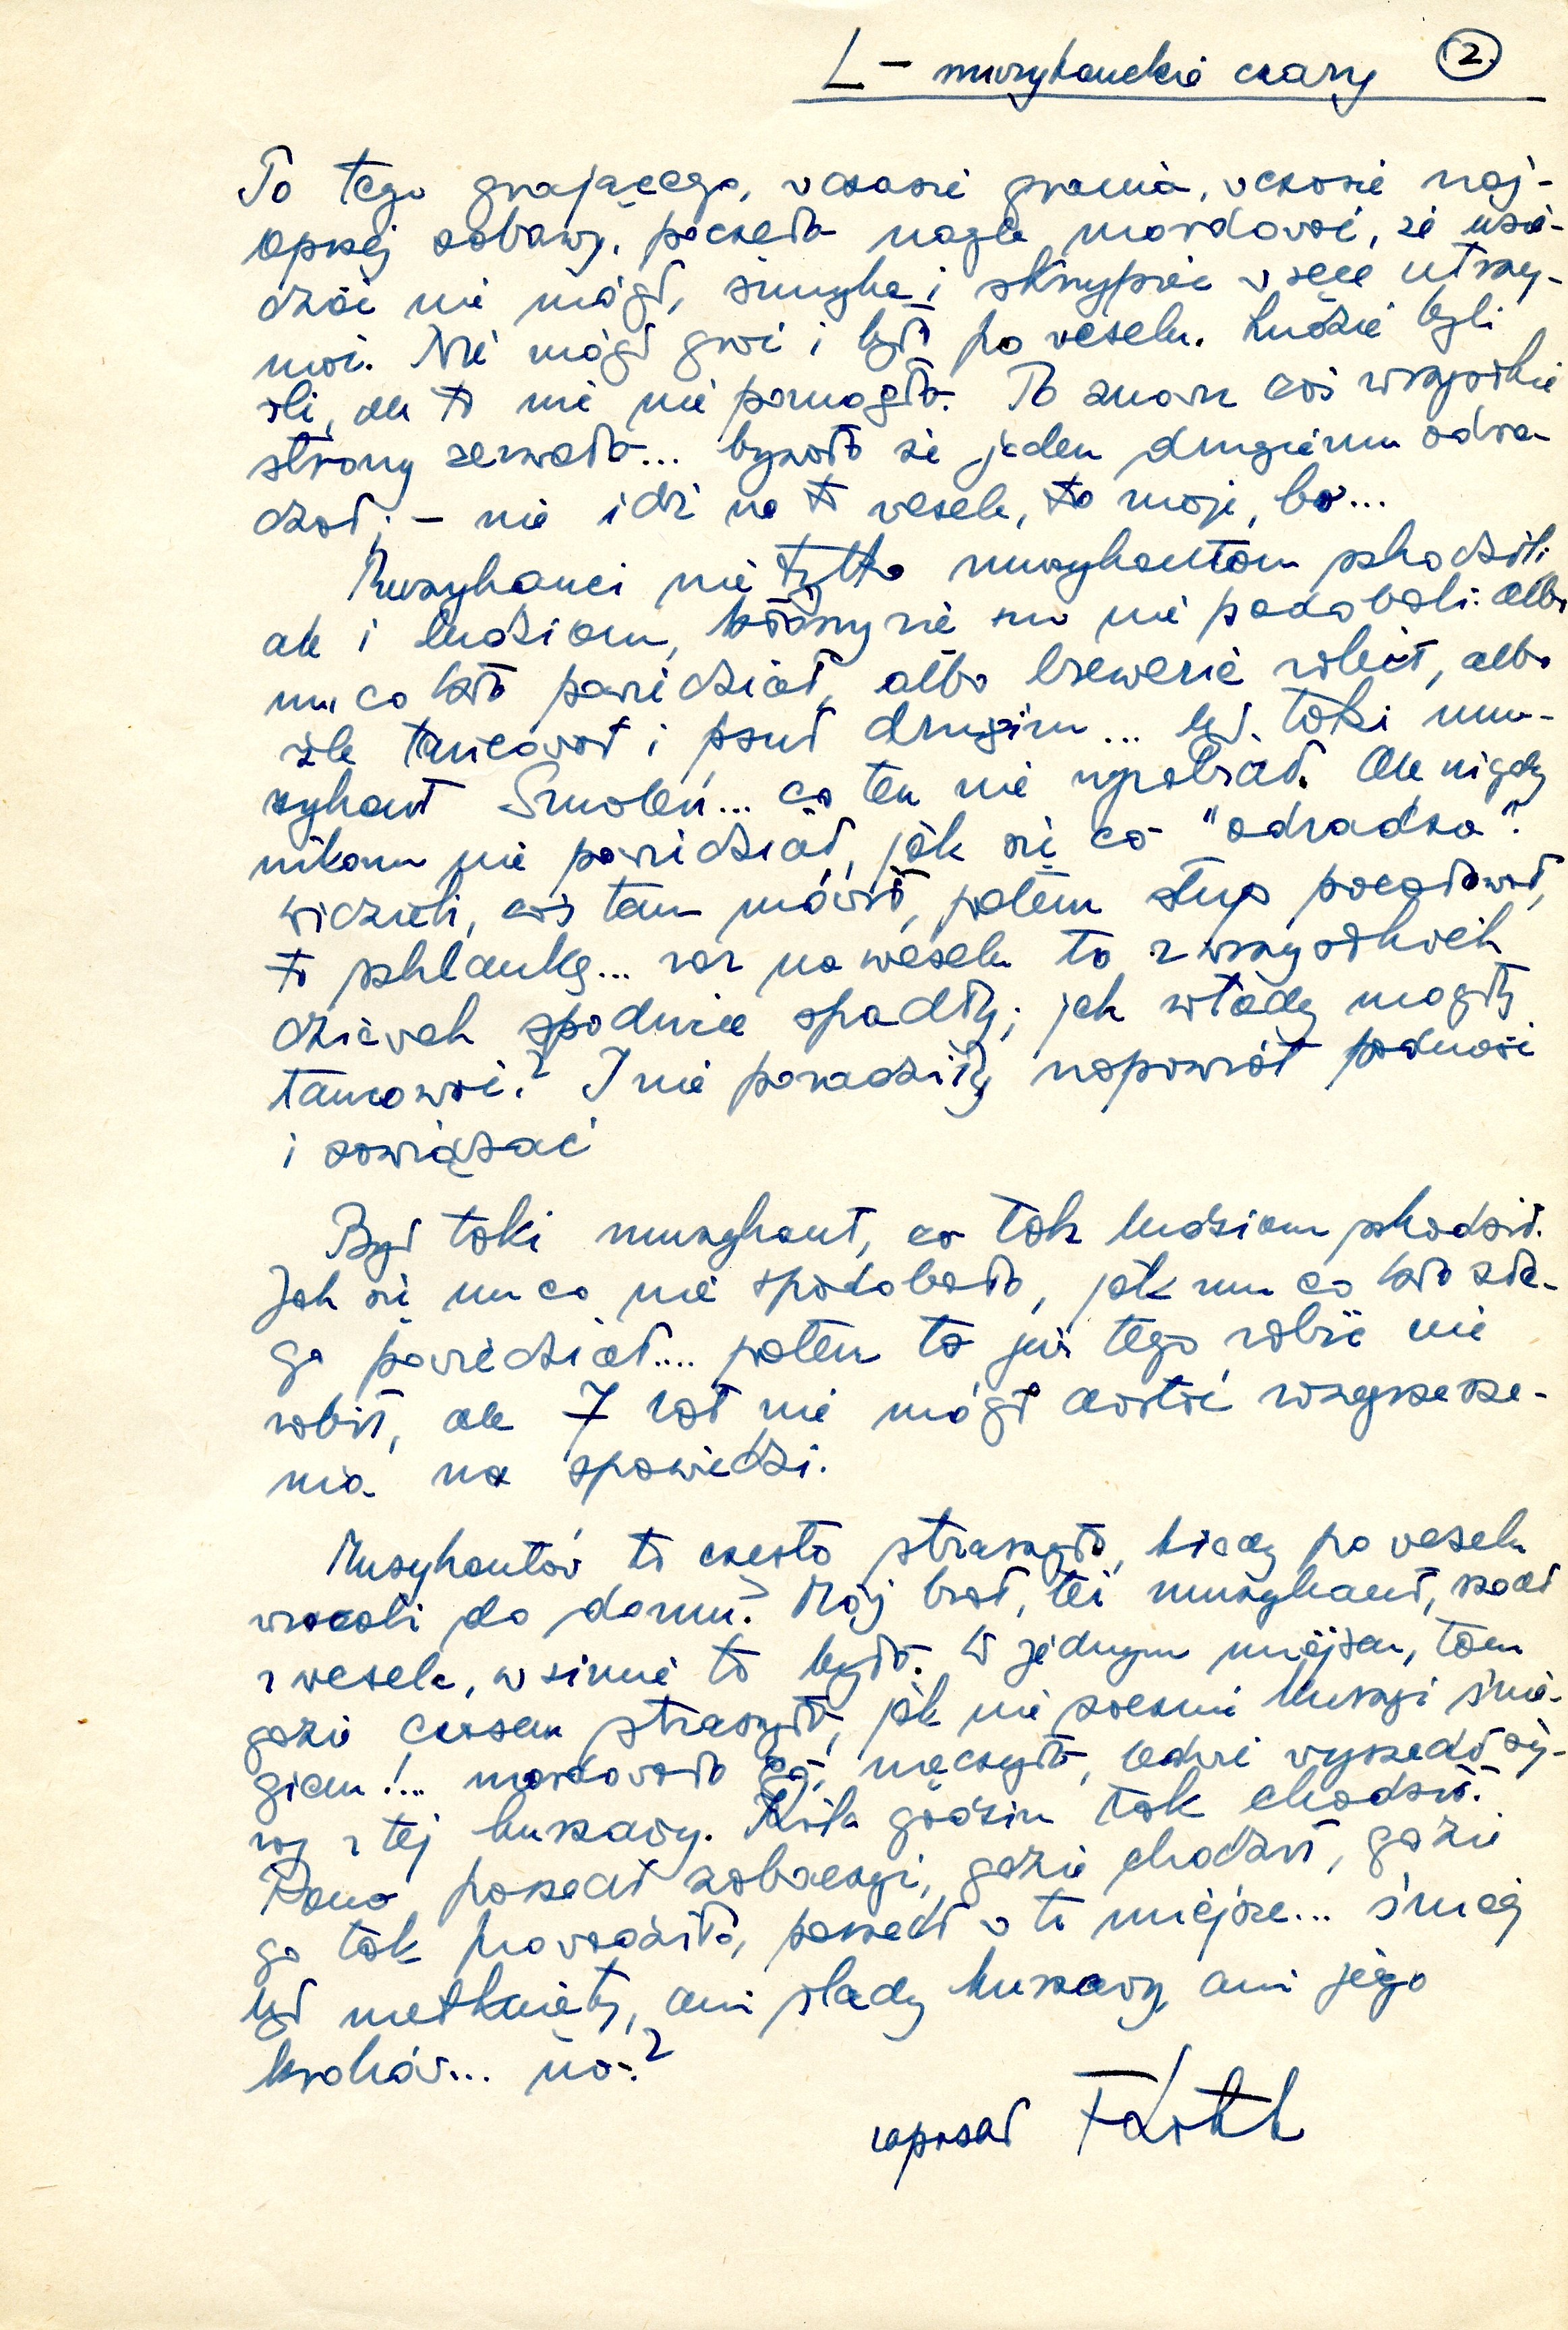 L – muzykanckie czary (2.)
To tego grającego, v czasie grania, v czasie naj-
lepszej zabawy, poczęło nagle mordovać, że usie-
dzić nie mógł, smyka i skrzypiec v ręce utrzy-
mać. Nie mógł grać i był po veselu. Ludzie byli
źli, ale to nic nie pomogło. To znowu coś wszyśtkie
strony zerwało... bywało że jeden drugiemu odra-
dzał; – nie idź na to vesele, to moje, bo...
Muzykanci nie tylko muzykantom szkodzili,
ale i ludziom, którzy się im nie podobali: albo
mu co kto powiedział, albo brewerie robił, albo
źle tańcovał i psuł drugim... był taki mu-
zykant Smoleń... co ten nie wyrabiał. Ale nigdy
nikomu nie powiedział, jak się co "odradza".
Widzieli, coś tam móvił, potem słup pocałował,
to szklankę... raz na weselu to z wszyśtkich
dzievek spódnice spadły; jak wtedy mogły
tańcować? I nie poradziły napowrót podnosić
i zawiązać
Był taki muzykant, co tak ludziom szkodził.
Jak się mu co nie spodobało, jak mu co kto złe-
go powiedział.... potem to już tego robić nie
robił, ale 7 lat nie mógł dostać rozgrzesze-
nia na spowiedzi.
Muzykantóv to często straszyło, kiedy po veselu
wracali do domu? Mój brat, też muzykant, szedł
z vesela, w zimie to było. W jednym miejscu, tam
gdzie czasem straszyło, jak nie zacznie kurzyć śnie-
giem!... mordovało go, męczyło, ledwie vyszedł ży-
wy z tej kurzawy. Kilka godzin tak chodził.
Rano poszedł zobaczyć, gdzie chodził, gdzie
go tak provadziło, poszedł v to miejsce... śnieg
był nietknięty, ani śladu kurzawy ani jego
krokóv... no?
zapisał